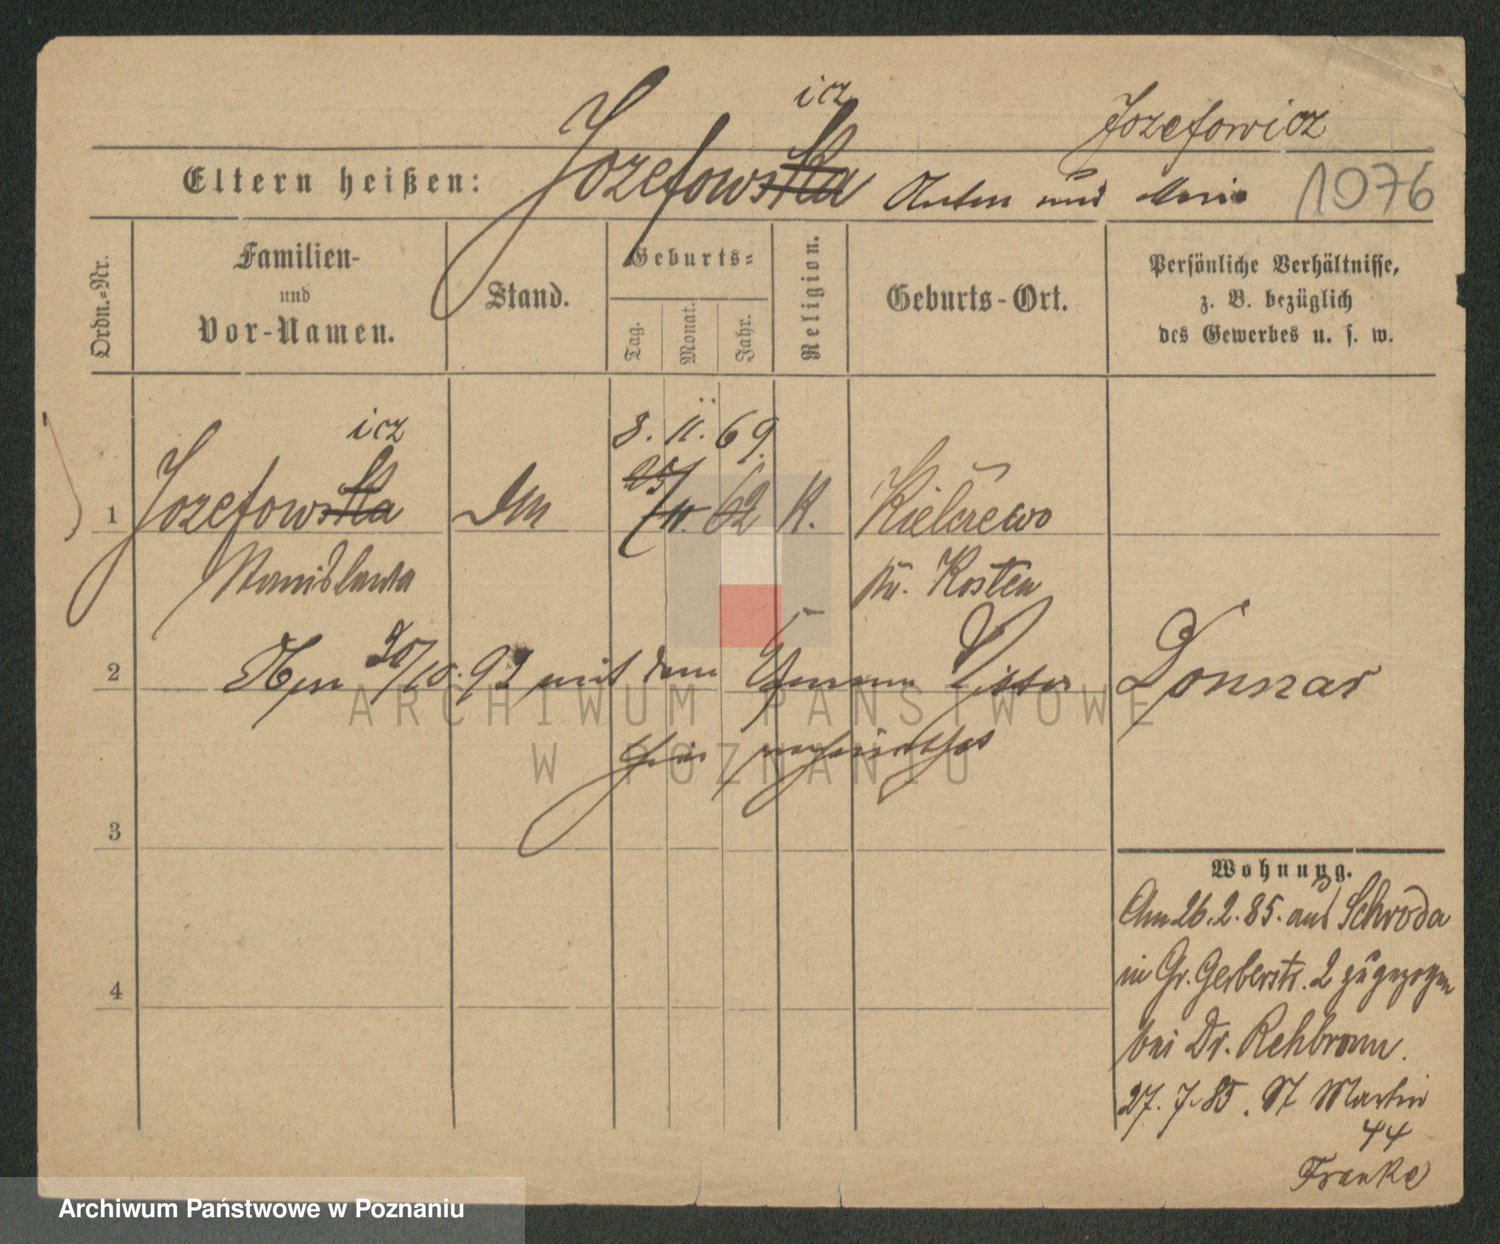 icz
Jozefowska
Jozefowicz
Eltern heißen:
Anton und Marie
1076
Ordn.-Nr.
Familien-
und
Vor-Namen.
Stand.
Geburts-
Tag.
Monat.
Jahr.
Religion.
Geburts-Ort.
Persönliche Verhältnisse,
z. B. bezüglich
des Gewerbes u. s. w.
icz
8. 11. 69.
1 Jozefowska 25/11. 62 K.
Stanislawa Kr. Kosten
2 20/10. 92 mit dem Donnar
hier
ARCHIWUM PAŃSTWOWE
W POZNANIU
3
4
Wohnung.
Am 26. 2. 85. aus Schroda
in Gr. Gerberstr. 2 zugezogen
bei Dr. Rehbronn.
27. 7. 85. St Martin
44
Franke
Archiwum Państwowe w Poznaniu